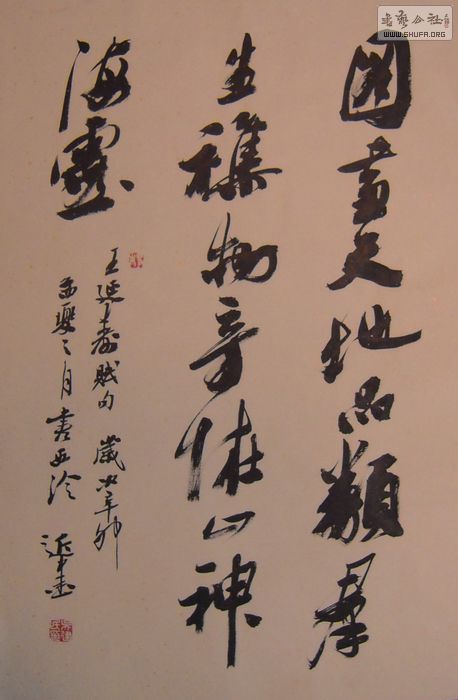 圖畫天地品類羣
生襍物奇恠山神
海靈
王延壽賦句 歲次辛卯
孟夏之月書
書藝公社
WWW.SHUFA.ORG